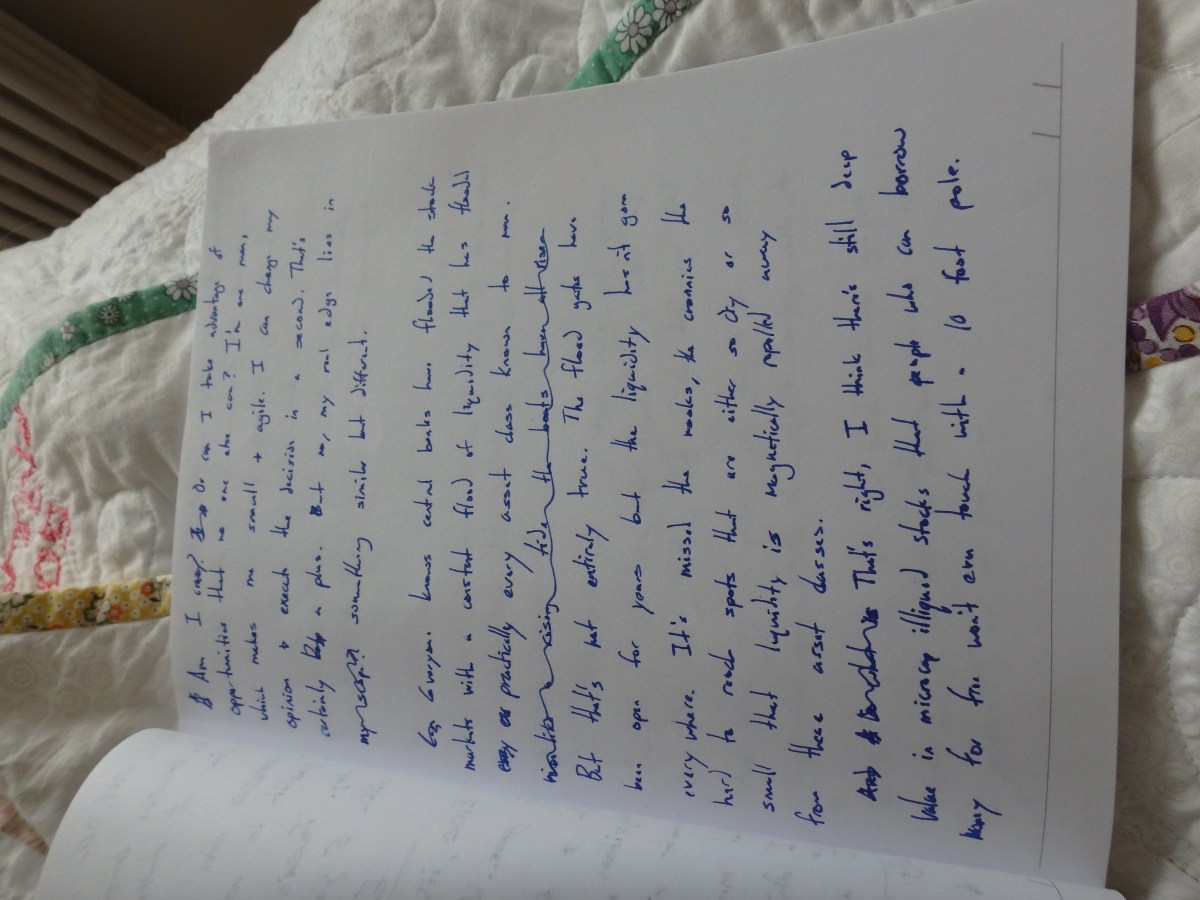 Am I crazy? Or can I take advantage of
opportunities that no one else can? I'm one man,
which makes me small + agile. I can change my
opinion + execute the decision in a second. That's
certainly a plus. But no, my real edge lies in
something similar but different.
Everyone knows central banks have flooded the stock
markets with a constant flood of liquidity that has flooded
practically every asset class known to man.
rising tide the boats have all risen
But that's not entirely true. The flood gates have
been open for years but the liquidity hasn't gone
everywhere. It's missed the nooks, the crannies the
hard to reach spots that are either so dry or so
small that liquidity is magnetically repelled away
from these asset classes.
That's right, I think there's still deep
value in microcap illiquid stocks that people who can borrow
money for free won't even touch with a 10 foot pole.